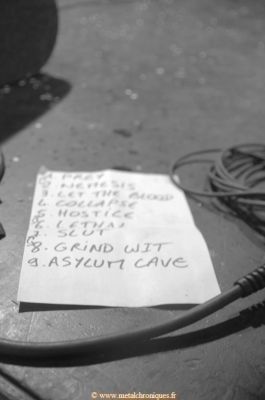 1. PREY
2. NEMESIS
3. LET THE BLOOD
4. COLLAPSE
5. HOSTICE
6. LETHAL
7. SLUT
8. GRIND WIT
9. ASYLUM CAVE
© www.metalchroniques.fr